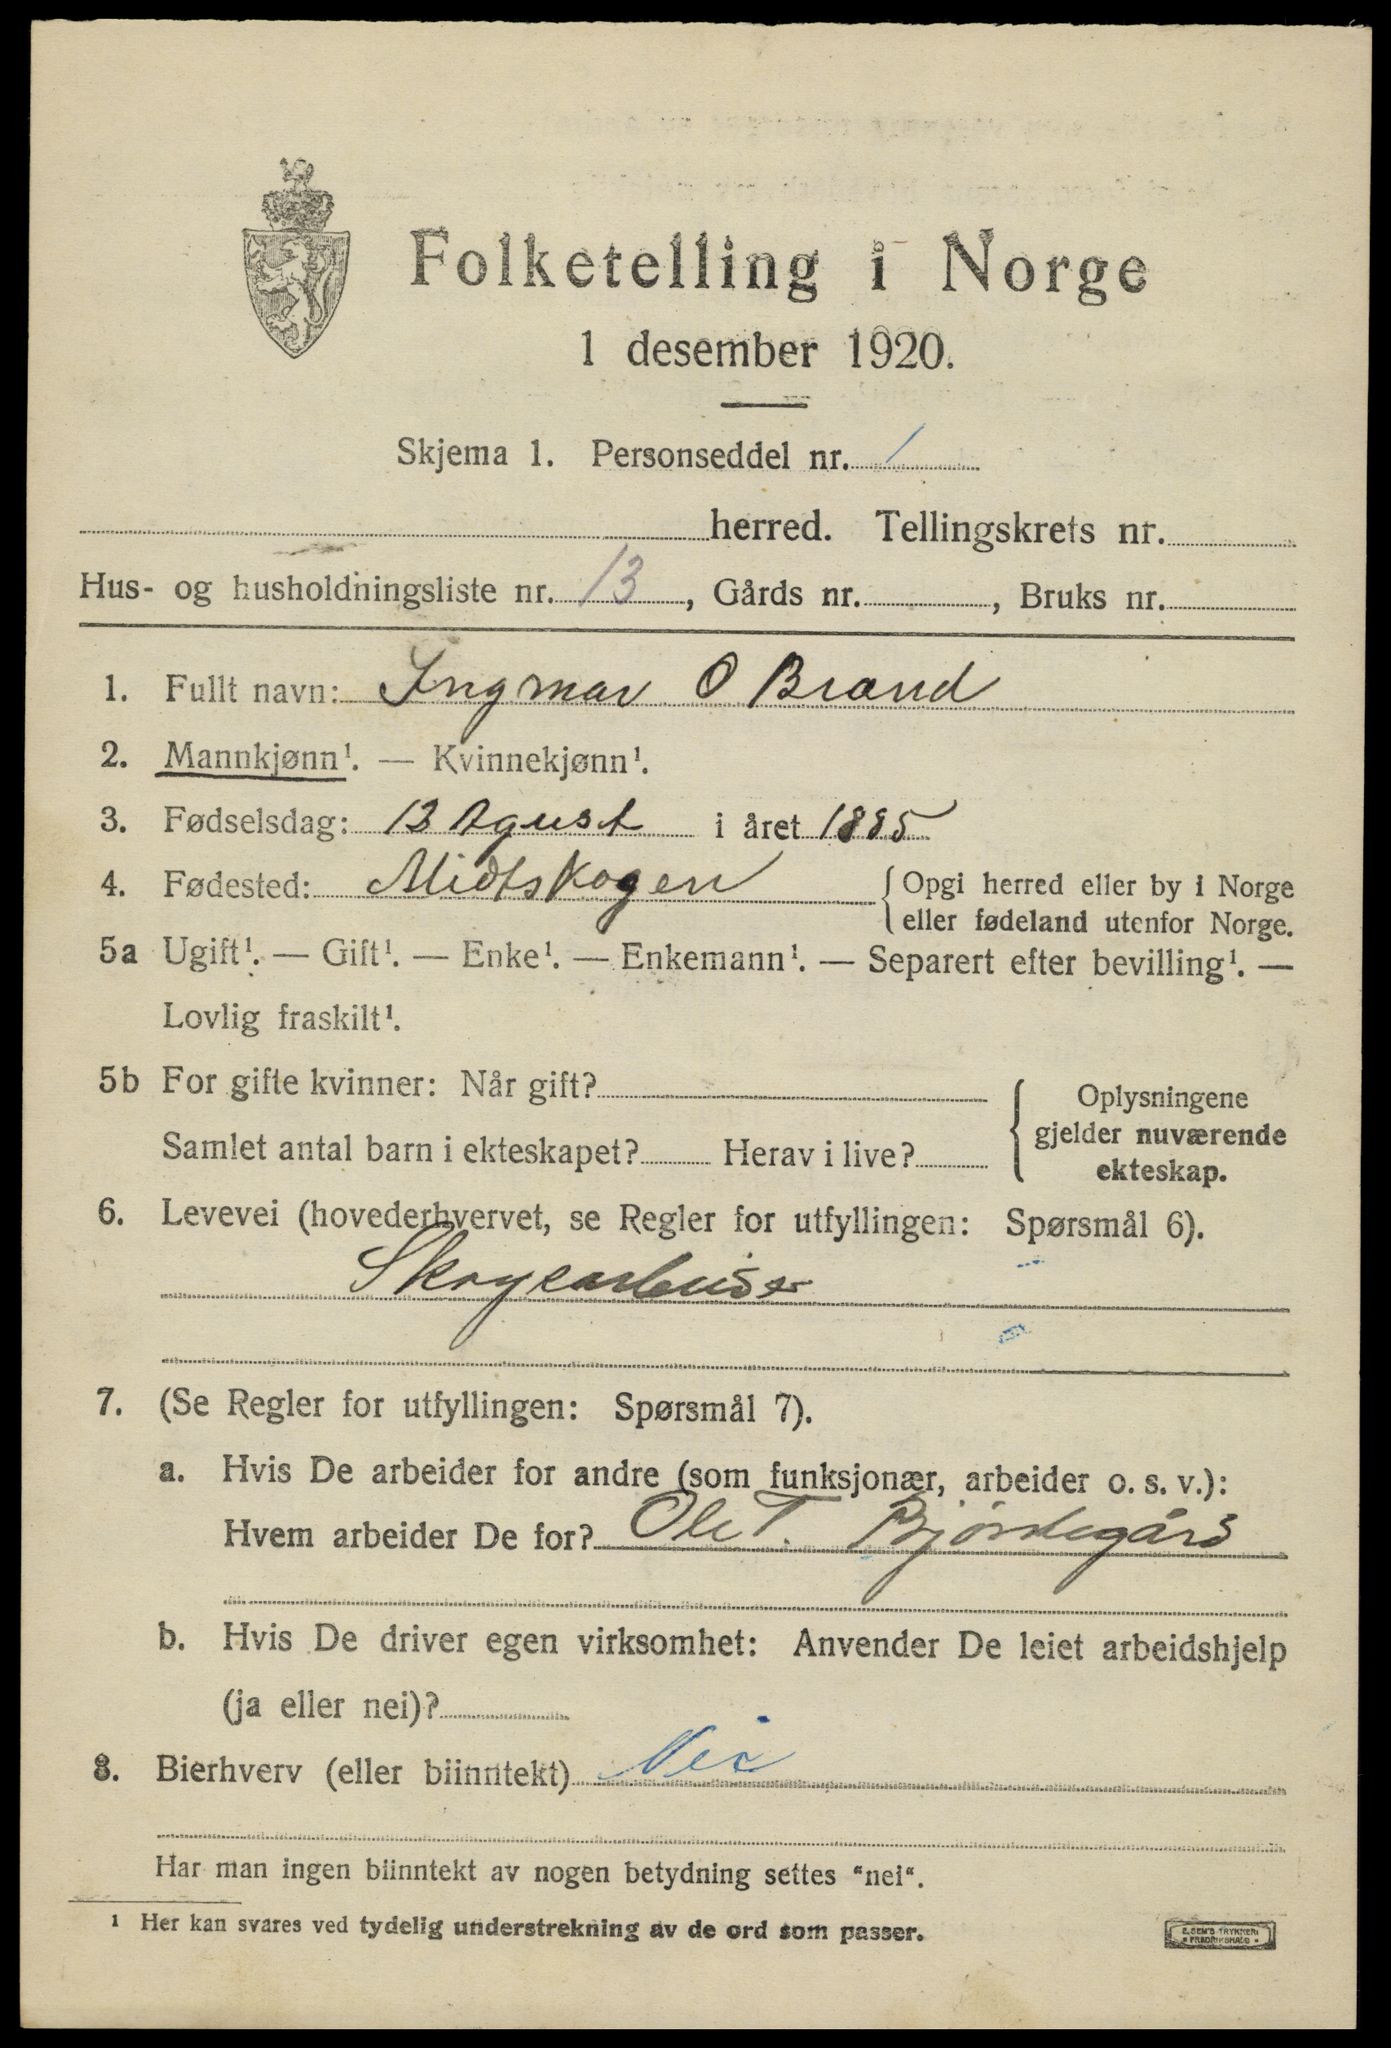 Folketelling i Norge
1 desember 1920.
Skjema 1. Personseddel nr. 1
herred. Tellingskrets nr.
Hus- og husholdningsliste nr. 13, Gårds nr. , Bruks nr.
1. Fullt navn: Ingmar O Brænd
2. Mannkjønn¹. — Kvinnekjønn¹.
3. Fødselsdag: 13 Agust i året 1885
4. Fødested: Midtskogen { Opgi herred eller by i Norge
eller fødeland utenfor Norge.
5a Ugift¹. — Gift¹. — Enke¹. — Enkemann¹. — Separert efter bevilling¹. —
Lovlig fraskilt¹.
5b For gifte kvinner: Når gift?
Samlet antal barn i ekteskapet? Herav i live?
{ Oplysningene
gjelder nuværende
ekteskap.
6. Levevei (hovederhvervet, se Regler for utfyllingen: Spørsmål 6).
Skogearbeider
7. (Se Regler for utfyllingen: Spørsmål 7).
a. Hvis De arbeider for andre (som funksjonær, arbeider o. s. v.):
Hvem arbeider De for? Ole T. Bjørdegård
b. Hvis De driver egen virksomhet: Anvender De leiet arbeidshjelp
(ja eller nei)?
8. Bierhverv (eller biinntekt) Nei
Har man ingen biinntekt av nogen betydning settes "nei".
¹ Her kan svares ved tydelig understrekning av de ord som passer.
E. SEM'S TRYKKERI
FREDRIKSHALD